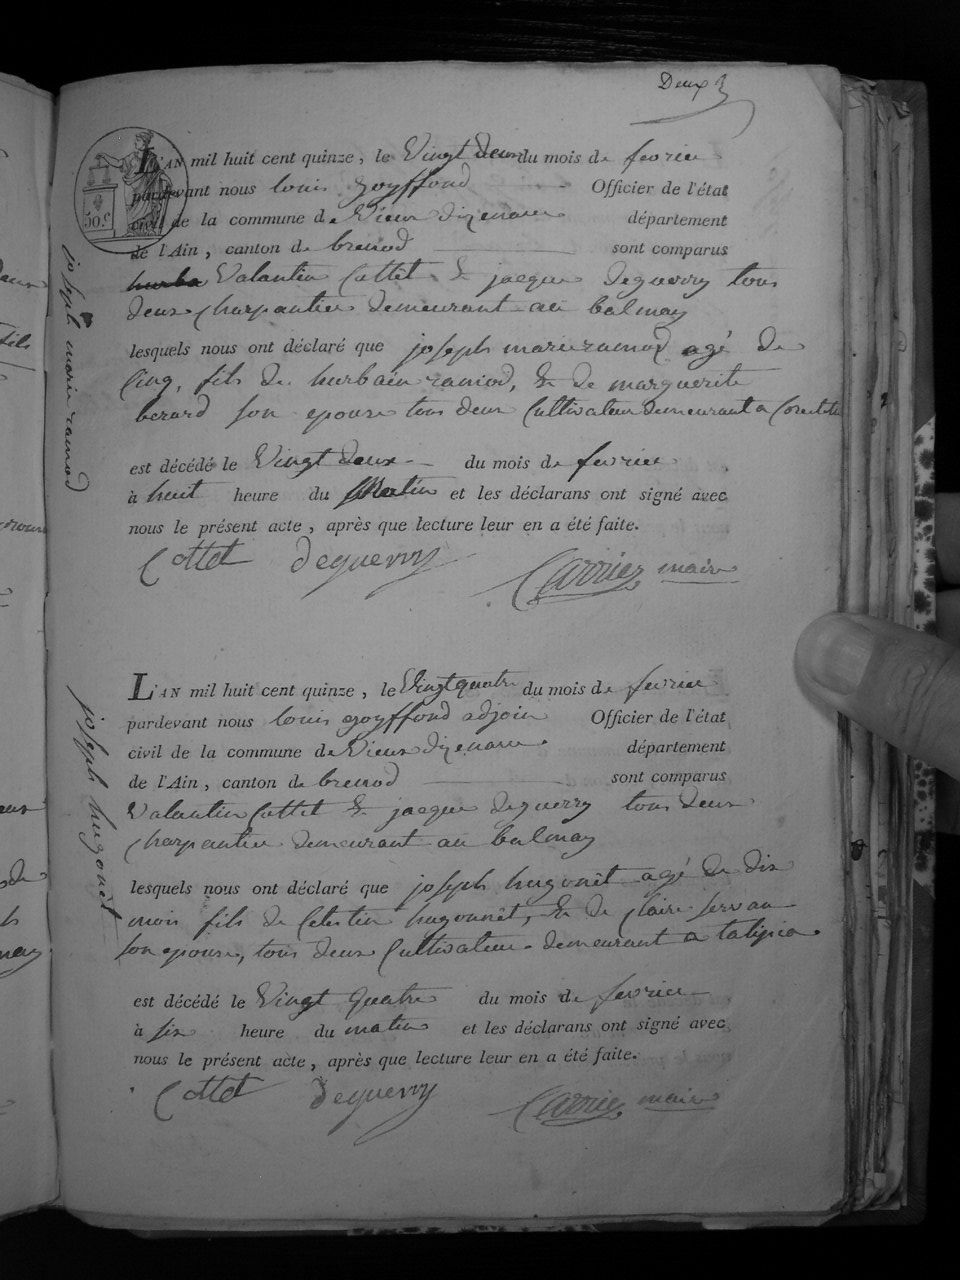 Deux
L'AN mil huit cent quinze, le Vingt deux du mois de fevrier
pardevant nous louis goyffond Officier de l'état
50.c
civil de la commune de Vieux dizenave département
de l'Ain, canton de brenod sont comparus
Valantin Cottet & jacque deguerry tous
deux charpantier demeurant au balmay
lesquels nous ont déclaré que joseph marie ramod agé de
Cinq, fils de hurbain ramod, & de marguerite
berard son epouse tous deux Cultivateur demeurant a
est décédé le Vingt deux du mois de fevrier
à huit heure du Matin et les déclarans ont signé avec
nous le présent acte, après que lecture leur en a été faite.
Cottet deguerry Carrier maire
joseph marie ramod
L'AN mil huit cent quinze, le Vingt quatre du mois de fevrier
pardevant nous louis goyffond adjoin Officier de l'état
civil de la commune de Vieux dizenave département
de l'Ain, canton de brenod sont comparus
Valantin Cottet & jacque deguerry tous deux
charpantier demeurant au balmay
lesquels nous ont déclaré que joseph hugonêt agé de dix
mois fils de Celestin hugonnêt, & de Claire servan
son epouse, tous deux Cultivateur demeurant a
est décédé le Vingt quatre du mois de fevrier
à six heure du matin et les déclarans ont signé avec
nous le présent acte, après que lecture leur en a été faite.
Cottet deguerry Carrier maire
joseph hugonêt